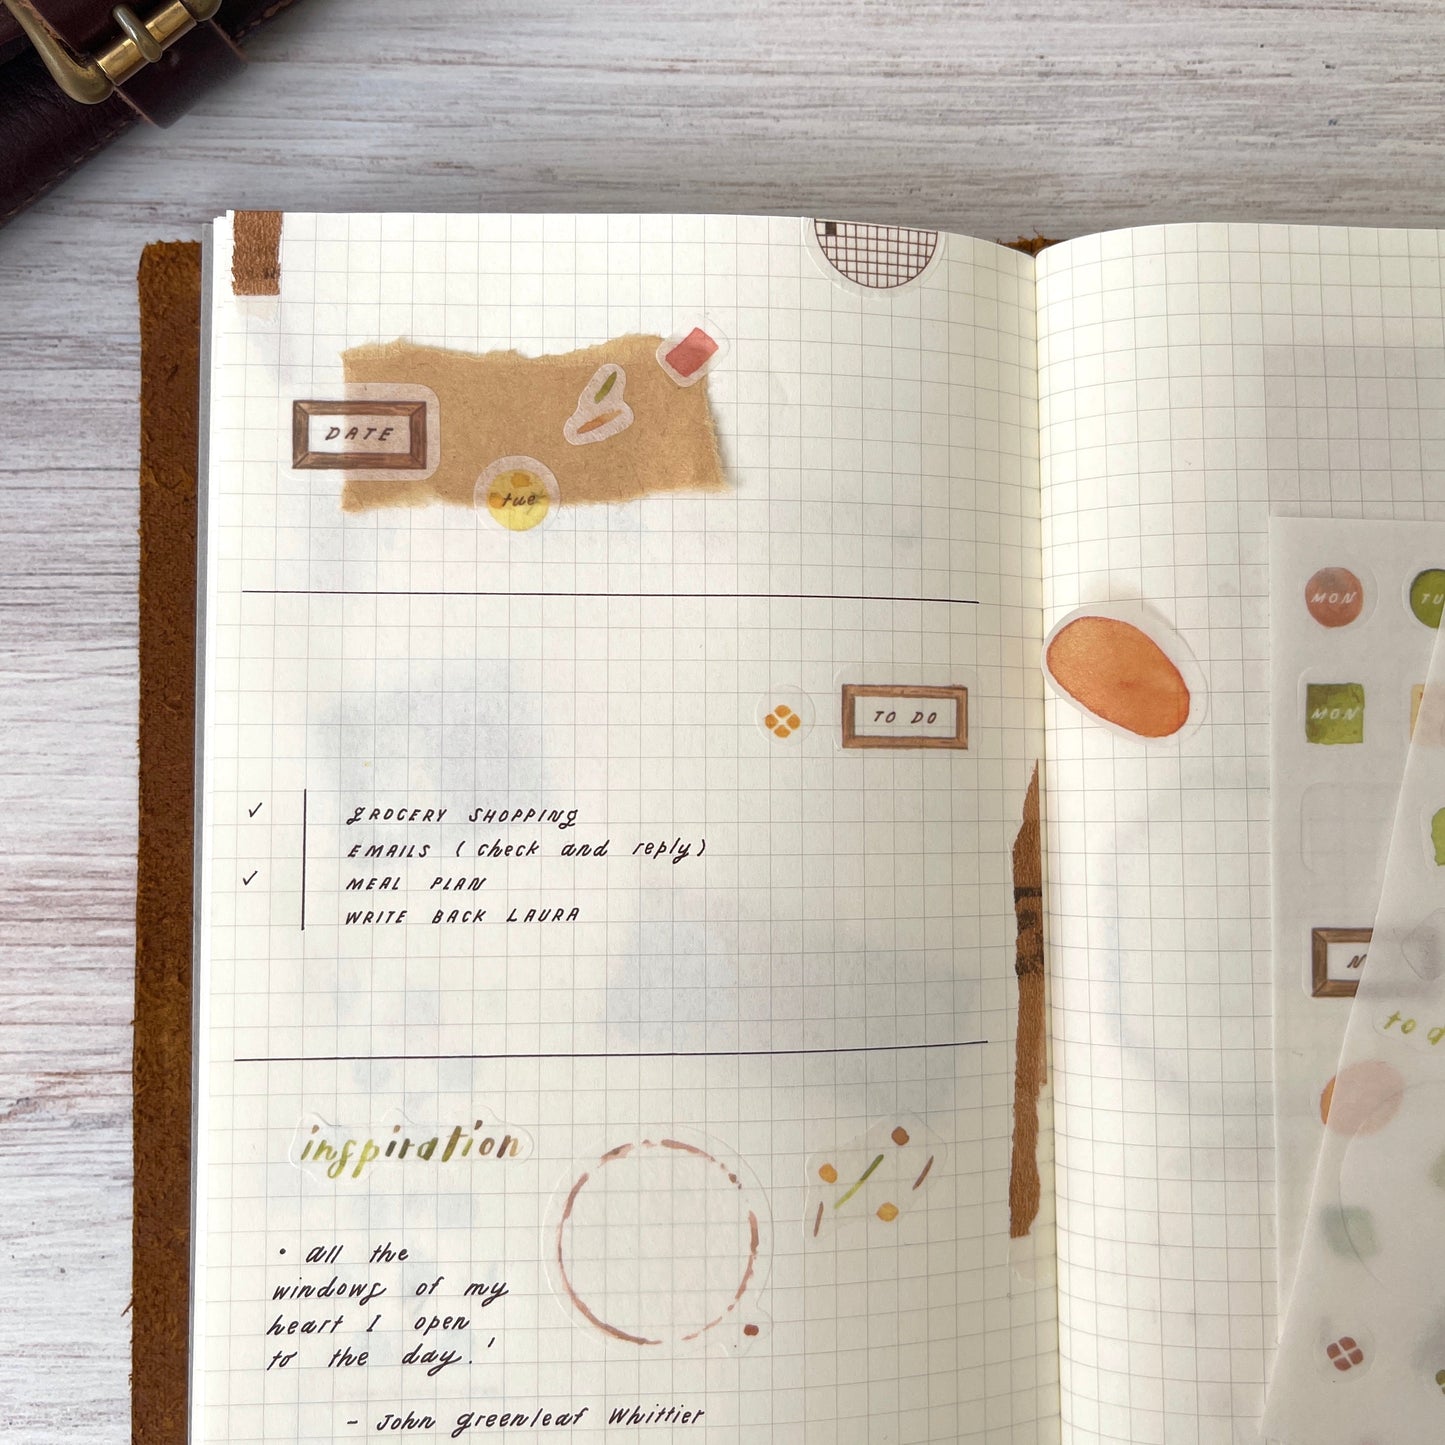 DATE
tue
TO DO
✓ GROCERY SHOPPING
EMAILS (check and reply)
✓ MEAL PLAN
WRITE BACK LAURA
inspiration
• all the
windows of my
heart I open
to the day.'
- John greenleaf Whittier
MON
TU
MON
N
to d